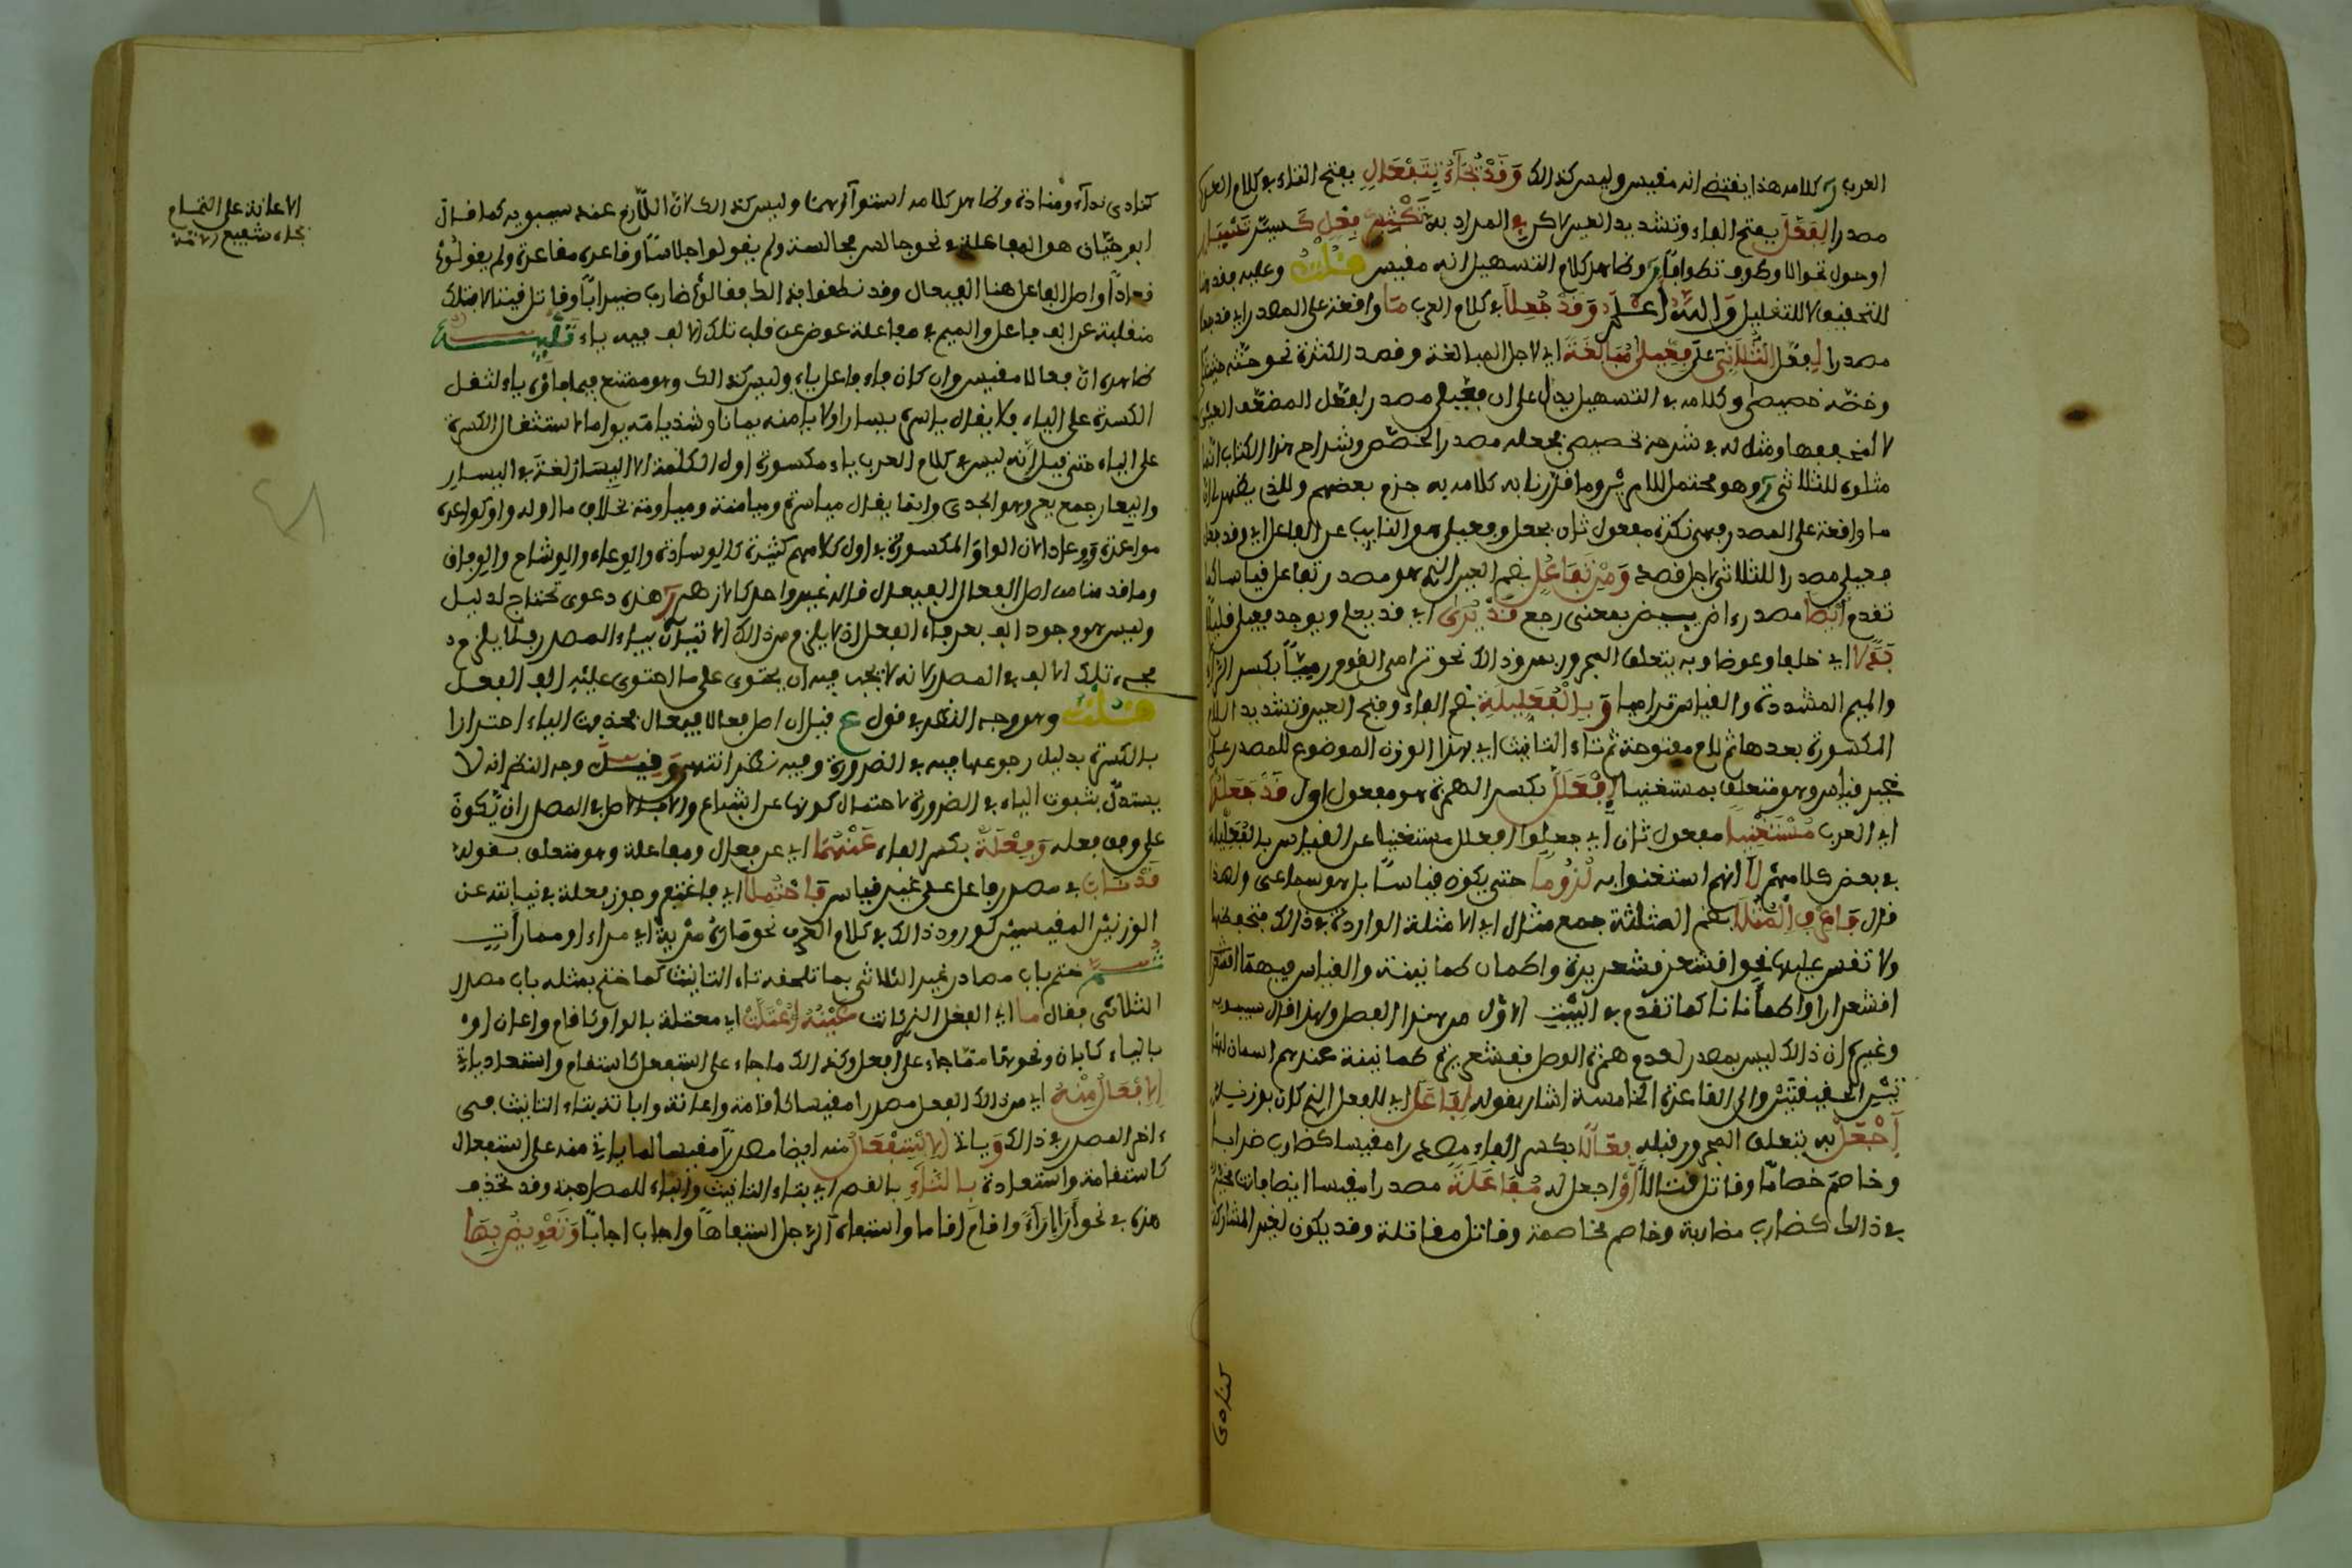 العرب كلامه هذا يقتضي انه مقيس وليس كذلك وَقَدْ يُجَاءُ بِتَفْعَالِ بفتح التاء في كلام العرب
مصدرا لِفَعَّلَ بفتح الفاء وتشديد العين لاكن المراد به تَكْثِيرُ فِعْلٍ كَسَيَّرَ تَسْيَار
او حول تحوالا وطوف تطوافا وظاهر كلام التسهيل انه مقيس قلت وعليه فقد هنا
للتحقيق لا للتقليل والله اعلم وَقَدْ جُعِلَا في كلام العرب مَا واقعة على المصدر اي قد جعل
مصدرا لِفَعَلَ الثُّلَاثِي فِعِّيلَى مُبَالَغَةً اي لاجل المبالغة وقصد الكثرة نحو حثه حثيثى
وخصه خصيصى وكلامه في التسهيل يدل على ان فعيلى مصدر لفعل المضعف العين
لا المخففها ومثل له في شرحه بخصيصى فجعله مصدر الخصص وشراح هذا الكتاب انما
مثلوه للثلاثي وهو محتمل للامرين وما قررنا به كلامه به جزم بعضهم والذي يظهر ان
ما واقعة على المصدر وهي نكرة مفعول ثان بجعل وفعيلى هو النايب عن الفاعل اي وقد جعل
فعيلى مصدرا للثلاثي لاجل قصد وَمِنْ تَفَاعُلٍ بضم العين الذي هو مصدر تفاعل قياسا كما
تقدم أَيْضًا مصدر ءاض يئيض بمعنى رجع قَدْ يُرَى اي قد يعلم ويوجد فعيلى قليلا
بَدَلَا اي خلفا وعوضا وبه يتعلق المجرور بمن وذلك نحو ترامى القوم رميا بكسر الراء
والميم المشددة والقياس تراميا وَبِالْفُعَلِّيلَةِ بضم الفاء وفتح العين وتشديد اللام
المكسورة بعدها ثم لام مفتوحة ثم تاء التانيث اي بهذا الوزن الموضوع للمصدر على
غير قياس وهو متعلق بمستغنيا اِفْعَلَلَّ بكسر الهمزة هو مفعول اول قَدْ جَعَلُوا
اي العرب مُسْتَغْنِيًا مفعول ثان اي جعلوا افعلل مستغنيا عن القياس بالفعليلة
في بعض كلامهم لَا انهم استغنوا به لُزُومًا حتى يكون قياسا بل هو سماعي ولهذا
قال فَاعْرِفِ الْمُثُلَا بضم المثلثة جمع مثال اي الامثلة الواردة في ذلك فتحفظها
ولا تقس عليها نحو اقشعر قشعريرة واطمان طمانينة والقياس فيهما اقشعر
اقشعرارا واطمأنانا كما تقدم في البيت الاول من هذا الفصل ولهذا قال سيبويه
وغيره ان ذلك ليس بمصدر لعدم همزة الوصل فقشعريرة طمانينة عندهم اسمان لهما
الحقيقتين والى القاعدة الخامسة اشار بقوله لِفَاعَلَ اي للفعل الذي كان بوزنه
اجْعَلْ به يتعلق المجرور قبله فِعَالًا بكسر الفاء مصدرا مقيسا كضارب ضرابا
وخاصم خصاما وقاتل قتالا أَوْ اجعل له مُفَاعَلَةً مصدرا مقيسا ايضا فانت مخير
في ذلك كضارب مضاربة وخاصم مخاصمة وقاتل مقاتلة وقد يكون لغير المشاركة
كنادى
كنادى نداء ومناداة وظاهر كلامه استواؤهما وليس كذلك لان اللازم عند سيبويه كما قال
ابو حيان هو المفاعلة نحو جالس مجالسة ولم يقولوا جلاسا وقاعده مقاعدة ولم يقولوا
قعادا واصل الفاعل هنا الفيعال وقد نطقوا بذلك فقالوا ضارب ضيرابا وقاتل قيتالا فتلك
منقلبة عن الف فاعل والميم في مفاعلة عوض عن قلب تلك الالف فيه ياء تنبيه
ظاهره ان فعالا مقيس وان كان فاء فاعل ياء وليس كذلك وهو ممتنع فيما فاؤه ياء لثقل
الكسرة على الياء فلا يقال ياسره يسارا ولا يامنه يمانا وشذ ياومه يواما لاستثقال الكسرة
على الياء حتى قيل انه ليس في كلام العرب ياء مكسورة اول الكلمة الا اليسار لغة في اليسار
واليعار جمع يعر وهو الجدي وانما يقال مياسرة وميامنة ومياومة بخلاف ما اوله واو كواعده
مواعدة ووعادا لان الواو المكسورة في اول كلامهم كثيرة كالوسادة والوعاء والوشاح والوجاف
وما قدمنا من اصل الفعال الفيعال قاله غير واحد كالازهري هذه دعوى تحتاج لدليل
وليس هو وجود الف بعد فاء الفعل اذ لا يلزم من ذلك الاتيان بياء المصدر فلا يلزم
مجيء تلك الالف في المصدر لانه لا يجب فيه ان يحتوي على ما احتوى عليه الف الفعل
قلت وهو وجه النظر في قول ع قيل ان اصل فعالا فيعال فحذفت الياء اجتزاء
بالكسرة بدليل رجوعها فيه في الضرورة وفيه نظر انتهى وقيل وجه النظر انه لا
يستدل بثبوت الياء في الضرورة لاحتمال كونها عن اشباع والاصل في المصدر ان يكون
على وفق فعله وَفِعْلَةٌ بكسر الفاء عَنْهُمَا اي عن فعال ومفاعلة وهو متعلق بقوله
قَدْ نَابَ في مصدر فاعل على غير قياس فَاحْتُمِلَا اي فاغتفر وجوز فعلة في نيابته عن
الوزنين المقيسين كورود ذلك في كلام العرب نحو ماريته مرية اي مراء او مماراة
ثم ختم باب مصادر غير الثلاثي بما تلحقه تاء التانيث كما ختم بمثله باب مصدر
الثلاثي فقال مَا اي الفعل الذي كانت عَيْنُهُ اعْتَلَّتْ اي معتلة بالواو كاقام واعان او
بالياء كابان ونحوهما مما جاء على افعل وكذلك ما جاء على استفعل كاستقام واستعاد ياتي
الإِفْعَالُ مِنْهُ اي من ذلك الفعل مصدرا مقيسا كاقامة واعانة وابانة بتاء التانيث في
ءاخر المصدر في ذلك وَياتي الِاسْتِفْعَالُ منه ايضا مصدرا مقيسا لما ياتي منه على استفعال
كاستقامة واستعادة بِالتَّاءِ بالقصر اي بتاء التانيث والباء للمصاحبة وقد تحذف
هذه في نحو أَرَا إراءً واقام اقاما واستفاه الرجل استفاها واجاب اجابا وَتَعْوِيضٌ بِهَا
الاعانة على التمام
بجاه شفيع الامة